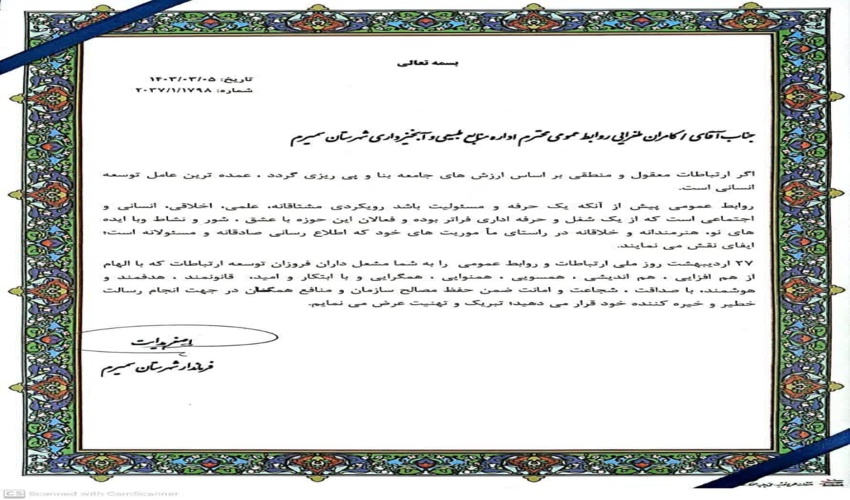 بسمه تعالی
تاریخ: ۱۴۰۳/۰۳/۰۵
شماره: ۲۰۳۷/۱/۱۷۹۸
جناب آقای کامران ملزایی روابط عمومی محترم اداره منابع طبیعی و آبخیزداری شهرستان سمیرم
اگر ارتباطات معقول و منطقی بر اساس ارزش های جامعه بنا و پی ریزی گردد ، عمده ترین عامل توسعه
انسانی است.
روابط عمومی پیش از آنکه یک حرفه و مسئولیت باشد رویکردی مشتاقانه، علمی، اخلاقی، انسانی و
اجتماعی است که از یک شغل و حرفه اداری فراتر بوده و فعالان این حوزه با عشق ، شور و نشاط وبا ایده
های نو، هنرمندانه و خلاقانه در راستای مأ موریت های خود که اطلاع رسانی صادقانه و مسئولانه است؛
ایفای نقش می نمایند.
۲۷ اردیبهشت روز ملی ارتباطات و روابط عمومی را به شما مشعل داران فروزان توسعه ارتباطات که با الهام
از هم افزایی ، هم اندیشی ، همسویی ، همنوایی ، همگرایی و با ابتکار و امید، قانونمند ، هدفمند و
هوشمند، با صداقت ، شجاعت و امانت ضمن حفظ مصالح سازمان و منافع همگنان در جهت انجام رسالت
خطیر و خیره کننده خود قرار می دهید؛ تبریک و تهنیت عرض می نمایم.
اصغر هدایت
فرماندار شهرستان سمیرم
CS Scanned with CamScanner